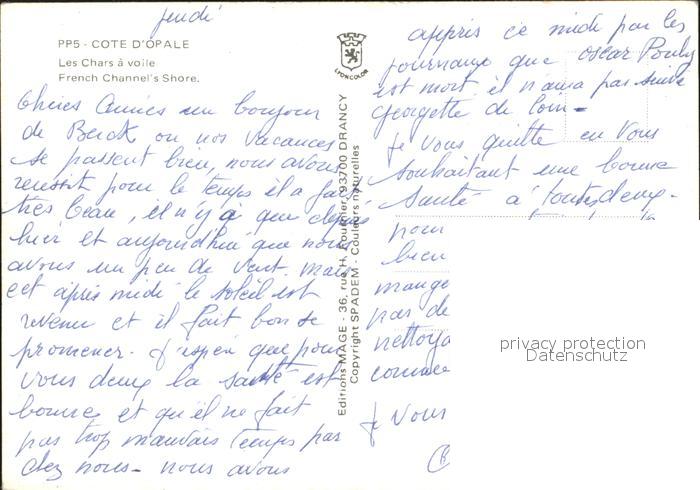 jeudi
PP5 - COTE D'OPALE
Les Chars à voile
French Channel's Shore.
LYONCOLOR
Chères Amies un bonjour
de Berck ou nos vacances
se passent bien, nous avons
reussit pour le temps il a fait
très beau, il n'y a que depuis
hier et aujourd'hui que nous
avons un peu de vent. mais
cet après midi le soleil est
revenu et il fait bon se
promener. J'espère que pour
vous deux la santé est
bonne et qu'il ne fait
pas trop mauvais temps par
chez nous - nous avons
Editions MAGE - 36, rue H. 93700 DRANCY
Copyright SPADEM - Couleurs naturelles
appris ce midi par les
journaux que oscar
est mort il n'aura pas suivi
georgette de loin -
Je vous quitte en vous
souhaitant une bonne
santé à toutes deux -
nous
bien
mange
pas de
nettoya
comme
Je vous
privacy protection
Datenschutz